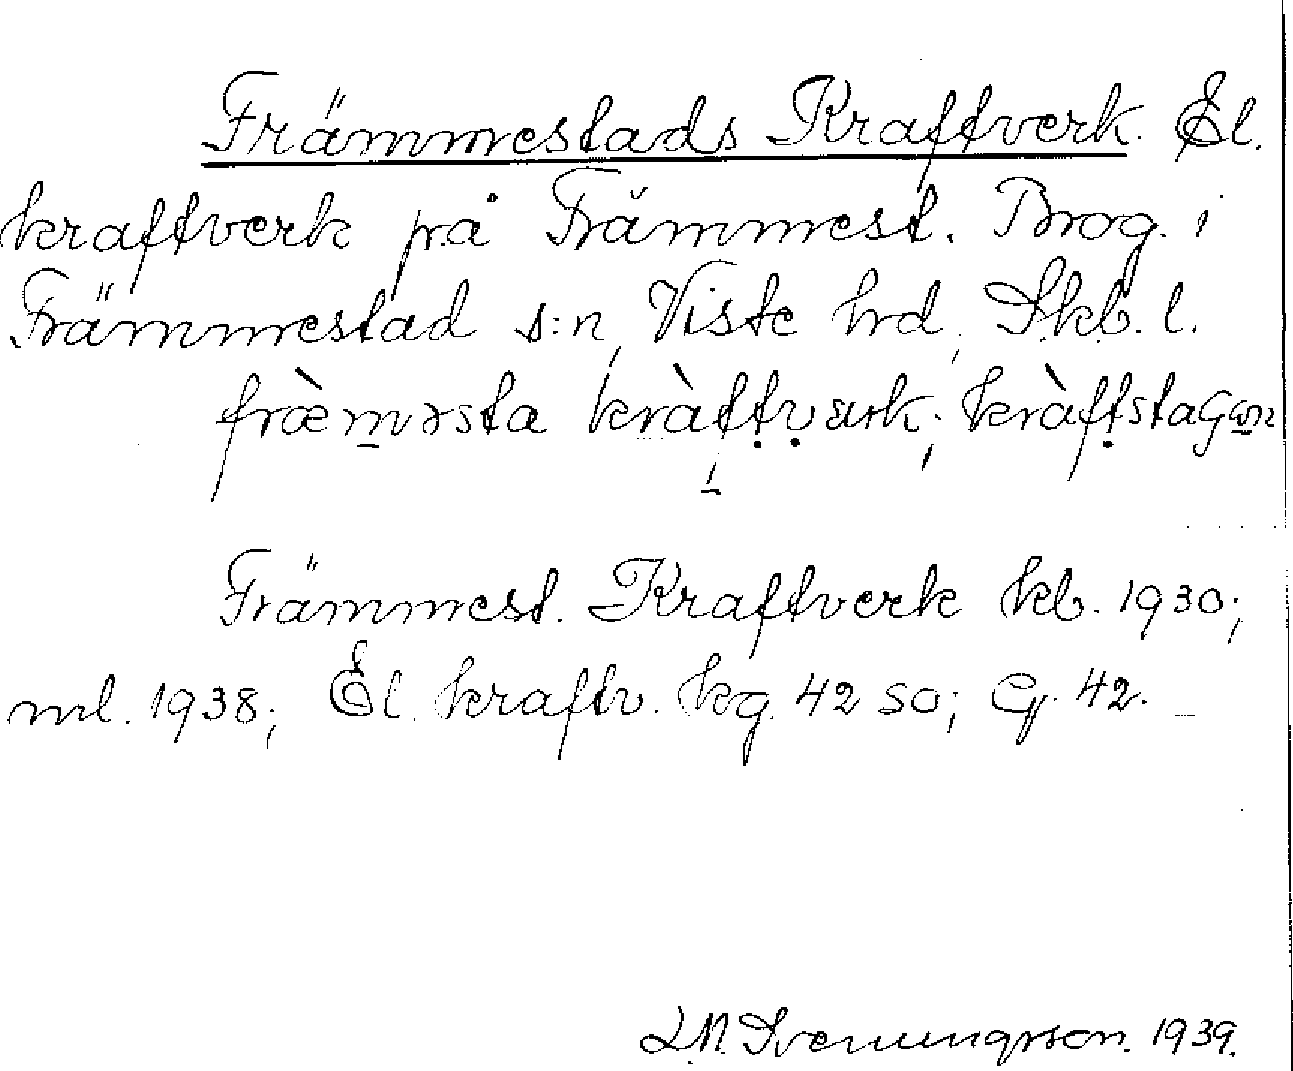 Främmestads Kraftverk. El.
kraftverk på Främmest. Brog. i
Främmestad s:n, Viste hd, Skb. l.
fràməsta kràftvärk; kràftstaGən
Främmest. Kraftverk kb. 1930;
ml. 1938; El. kraftv. kg. 42 SO; G. 42.
L.N. Svenungsson. 1939.